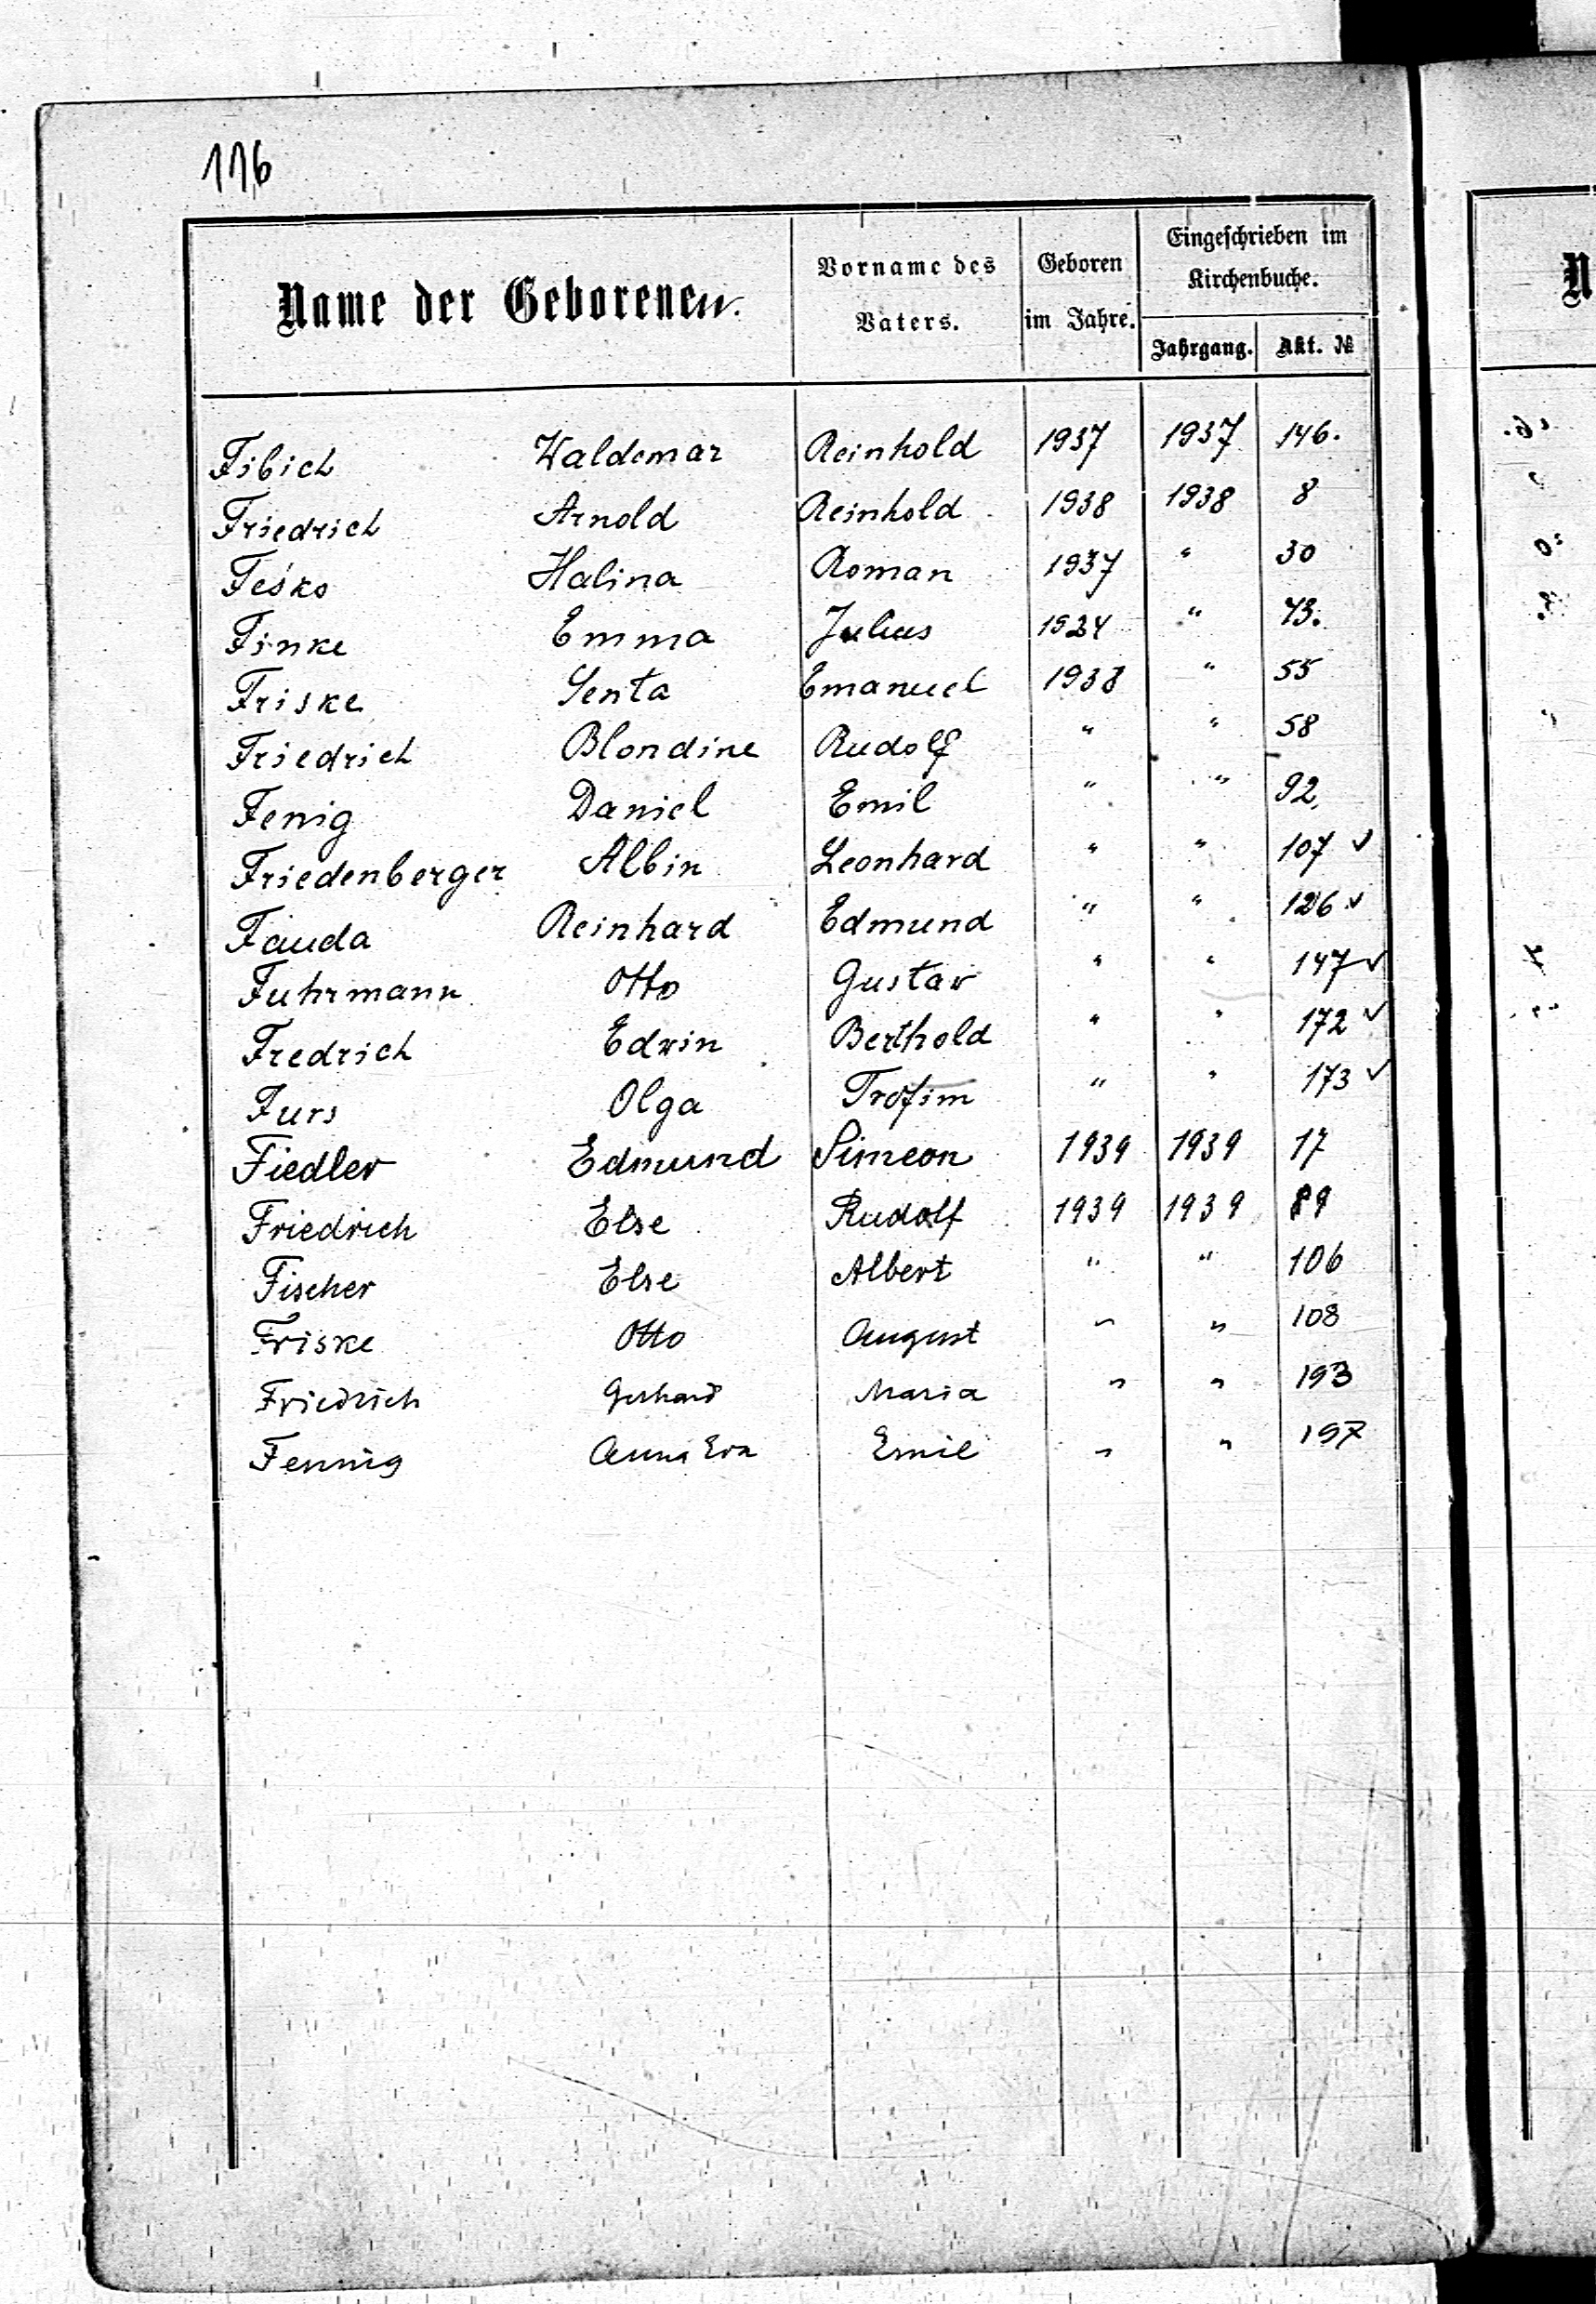 116
Name der Geborenen.
Vorname des Vaters.
Geboren im Jahre.
Eingeschrieben im Kirchenbuche.
Jahrgang. Akt. №
Fibich Waldemar Reinhold 1937 1937 146.
Friedrich Arnold Reinhold 1938 1938 8
Feśko Halina Roman 1937 " 30
Finke Emma Julius 1924 " 43.
Friske Senta Emanuel 1938 " 55
Friedrich Blondine Rudolf " " 58
Fenig Daniel Emil " " 92,
Friedenberger Albin Leonhard " " 107 ✓
Fauda Reinhard Edmund " " 126 ✓
Fuhrmann Otto Gustav " " 147 ✓
Fredrich Edwin Berthold " " 172 ✓
Furs Olga Trofim " " 173 ✓
Fiedler Edmund Simeon 1939 1939 17
Friedrich Else Rudolf 1939 1939 89
Fischer Else Albert " " 106
Friske Otto August " " 108
Friedrich Gerhard Maria " " 193
Fennig Anna Eva Emil " " 197